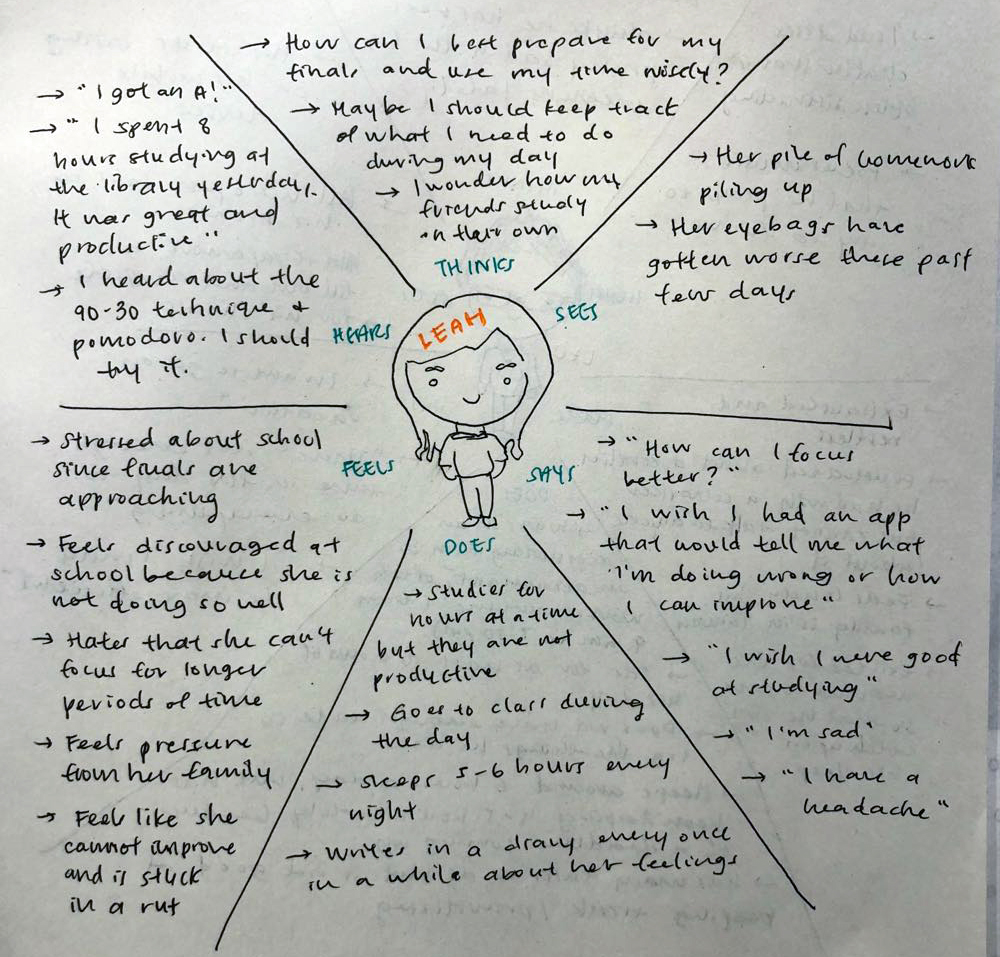 → How can I best prepare for my
finals and use my time wisely?
→ Maybe I should keep track
of what I need to do
during my day
→ I wonder how my
friends study
on their own
THINKS
→ "I got an A!"
→ " I spent 8
hours studying at
the library yesterday.
It was great and
productive"
→ I heard about the
90-30 technique +
pomodoro. I should
try it.
HEARS
LEAH
SEES
→ Her pile of homework
piling up
→ Her eyebags have
gotten worse these past
few days
→ Stressed about school
since finals are
approaching
→ Feels discouraged at
school because she is
not doing so well
→ Hates that she can't
focus for longer
periods of time
→ Feels pressure
from her family
→ Feels like she
cannot improve
and is stuck
in a rut
FEELS
SAYS
→ "How can I focus
better?"
→ "I wish I had an app
that would tell me what
I'm doing wrong or how
I can improve"
→ "I wish I were good
at studying"
→ "I'm sad"
→ "I have a
headache"
DOES
→ Studies for
hours at a time
but they are not
productive
→ Goes to class during
the day
→ Sleeps 5-6 hours every
night
→ Writes in a diary every once
in a while about her feelings